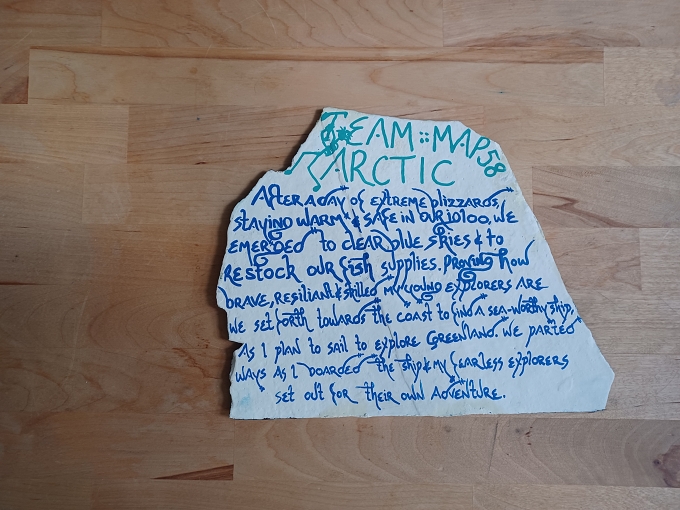 TEAM :: MAP58
ARCTIC
AFTER A DAY OF EXTREME BLIZZARDS,
STAYING WARM & SAFE IN OUR IGLOO, WE
EMERGED TO CLEAR BLUE SKIES & TO
RESTOCK OUR FISH SUPPLIES. PROVING HOW
BRAVE, RESILIANT & SKILLED MY YOUNG EXPLORERS ARE
WE SET FORTH TOWARDS THE COAST TO FIND A SEA-WORTHY SHIP,
AS I PLAN TO SAIL TO EXPLORE GREENLAND. WE PARTED
WAYS AS I BOARDED THE SHIP & MY FEARLESS EXPLORERS
SET OUT FOR THEIR OWN ADVENTURE.